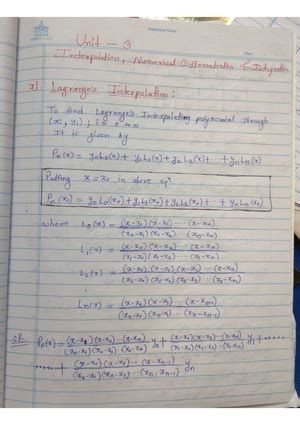 Unit - 3
Interpolation, Numerical Differentiation & Integration
I] Lagrange's Interpolation:
To find Lagrange's Interpolating polynomial through
(xi, yi) ; i = 0 to n
It is given by
Pn(x) = y0L0(x) + y1L1(x) + y2L2(x) + yn Ln(x)
Putting x = x0 in above eqn
Pn(x0) = y0L0(x0) + y1L1(x0) + y2L2(x0) + .. + yn Ln(x0)
where L0(x) = (x-x1)(x-x2) ... (x-xn) / (x0-x1)(x0-x2) (x0-xn)
L1(x) = (x-x0)(x-x2) ... (x-xn) / (x1-x0)(x1-x2) .. (x1-xn)
L2(x) = (x-x0)(x-x1) ... (x-xn) / (x2-x0)(x2-x1) ... (x2-xn)
Ln(x) = (x-x0)(x-x1) ... (x-xn-1) / (xn-x0)(xn-x1) .. (xn-xn-1)
Pn(x) = (x-x1)(x-x2) .. (x-xn) / (x0-x1)(x0-x2) (x0-xn) y0 + (x-x0)(x-x2) .. (x-xn) / (x1-x0)(x1-x2) .. (x1-xn) y1 + ......
...... + (x-x0)(x-x1) ... (x-xn-1) / (xn-x0)(xn-x1) ... (xn-xn-1) yn